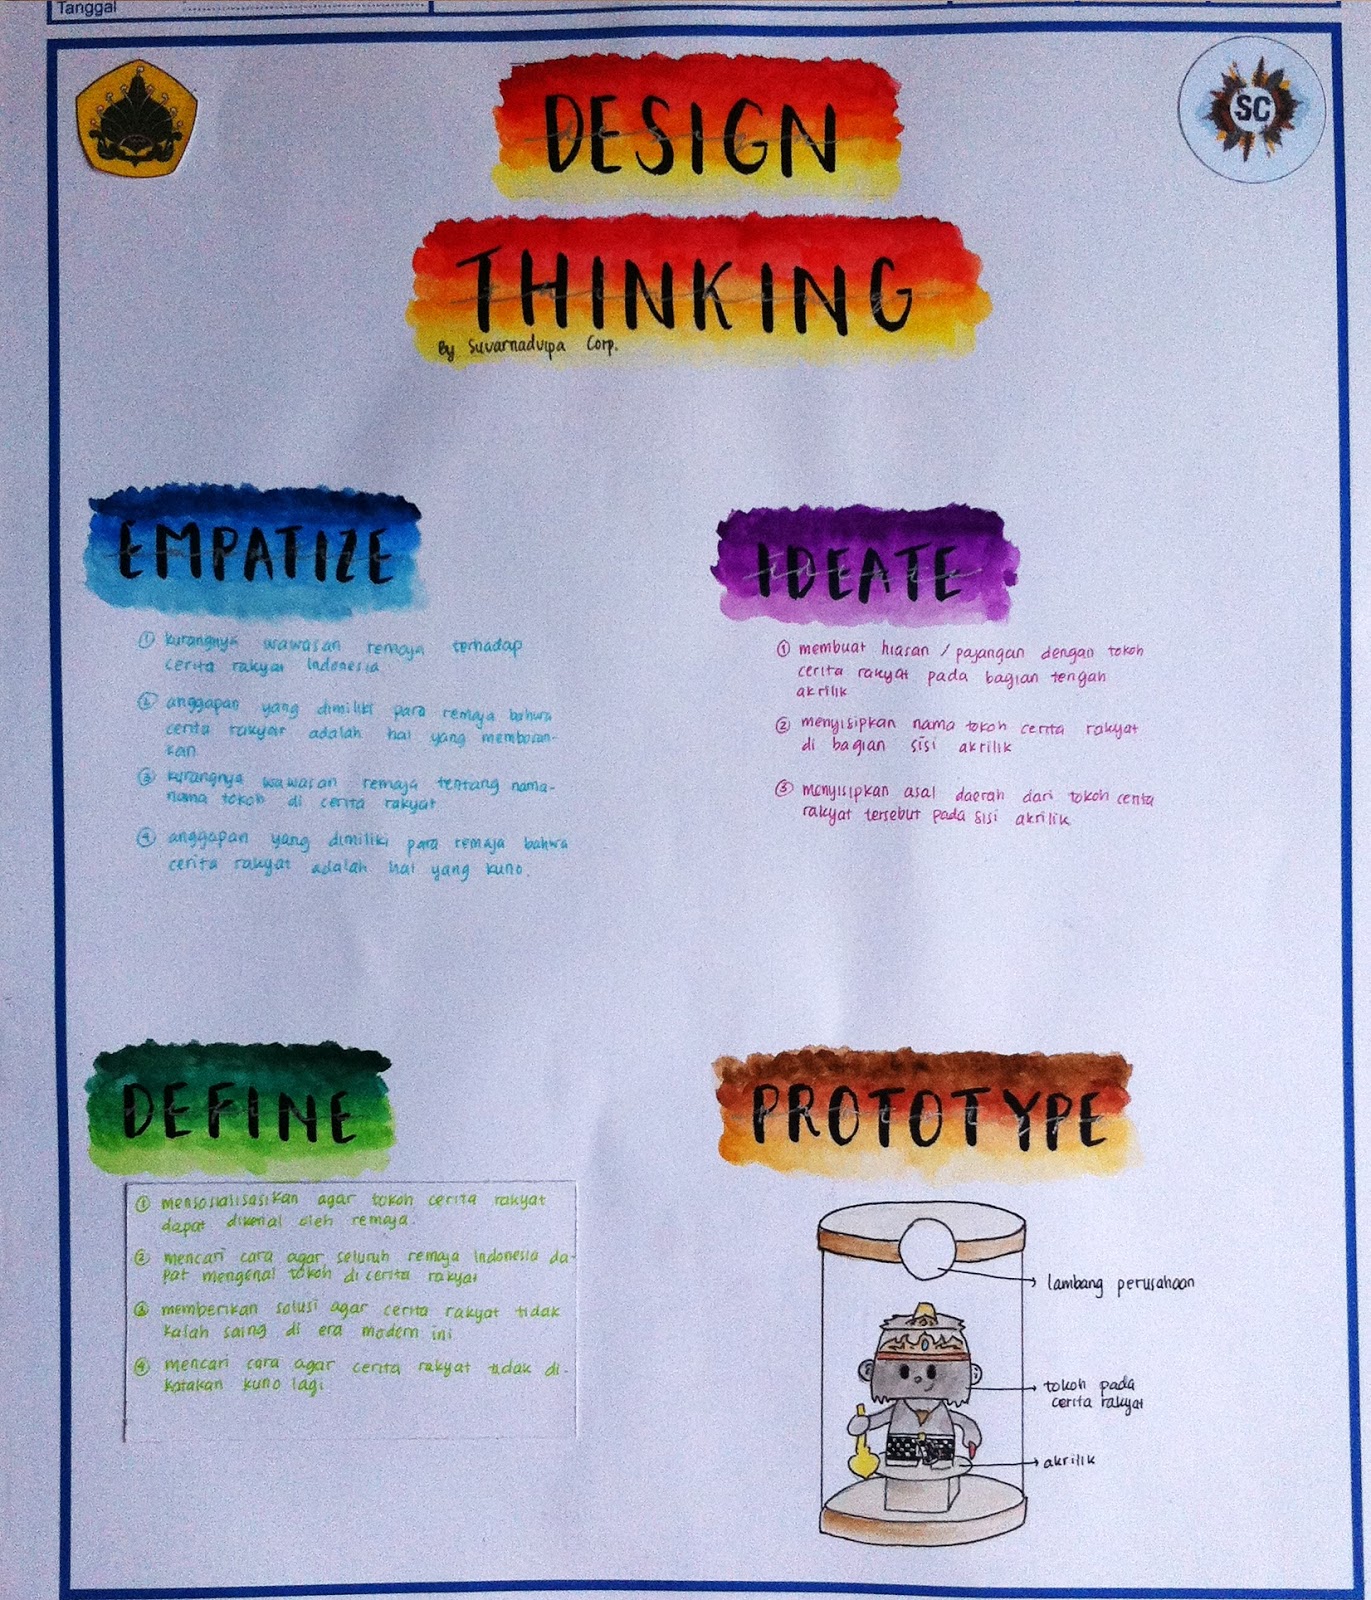 Tanggal
SC
DESIGN
THINKING
By Suvarnadvipa Corp.
EMPATIZE
① kurangnya wawasan remaja terhadap
cerita rakyat Indonesia
② anggapan yang dimiliki para remaja bahwa
cerita rakyat adalah hal yang membosan-
kan
③ kurangnya wawasan remaja tentang nama-
nama tokoh di cerita rakyat
④ anggapan yang dimiliki para remaja bahwa
cerita rakyat adalah hal yang kuno.
IDEATE
① membuat hiasan / pajangan dengan tokoh
cerita rakyat pada bagian tengah
akrilik
② menyisipkan nama tokoh cerita rakyat
di bagian sisi akrilik
③ menyisipkan asal daerah dari tokoh cerita
rakyat tersebut pada sisi akrilik
DEFINE
① mensosialisasikan agar tokoh cerita rakyat
dapat dikenal oleh remaja.
② mencari cara agar seluruh remaja Indonesia da-
pat mengenal tokoh di cerita rakyat
③ memberikan solusi agar cerita rakyat tidak
kalah saing di era modern ini
④ mencari cara agar cerita rakyat tidak di-
katakan kuno lagi
PROTOTYPE
lambang perusahaan
tokoh pada
cerita rakyat
akrilik